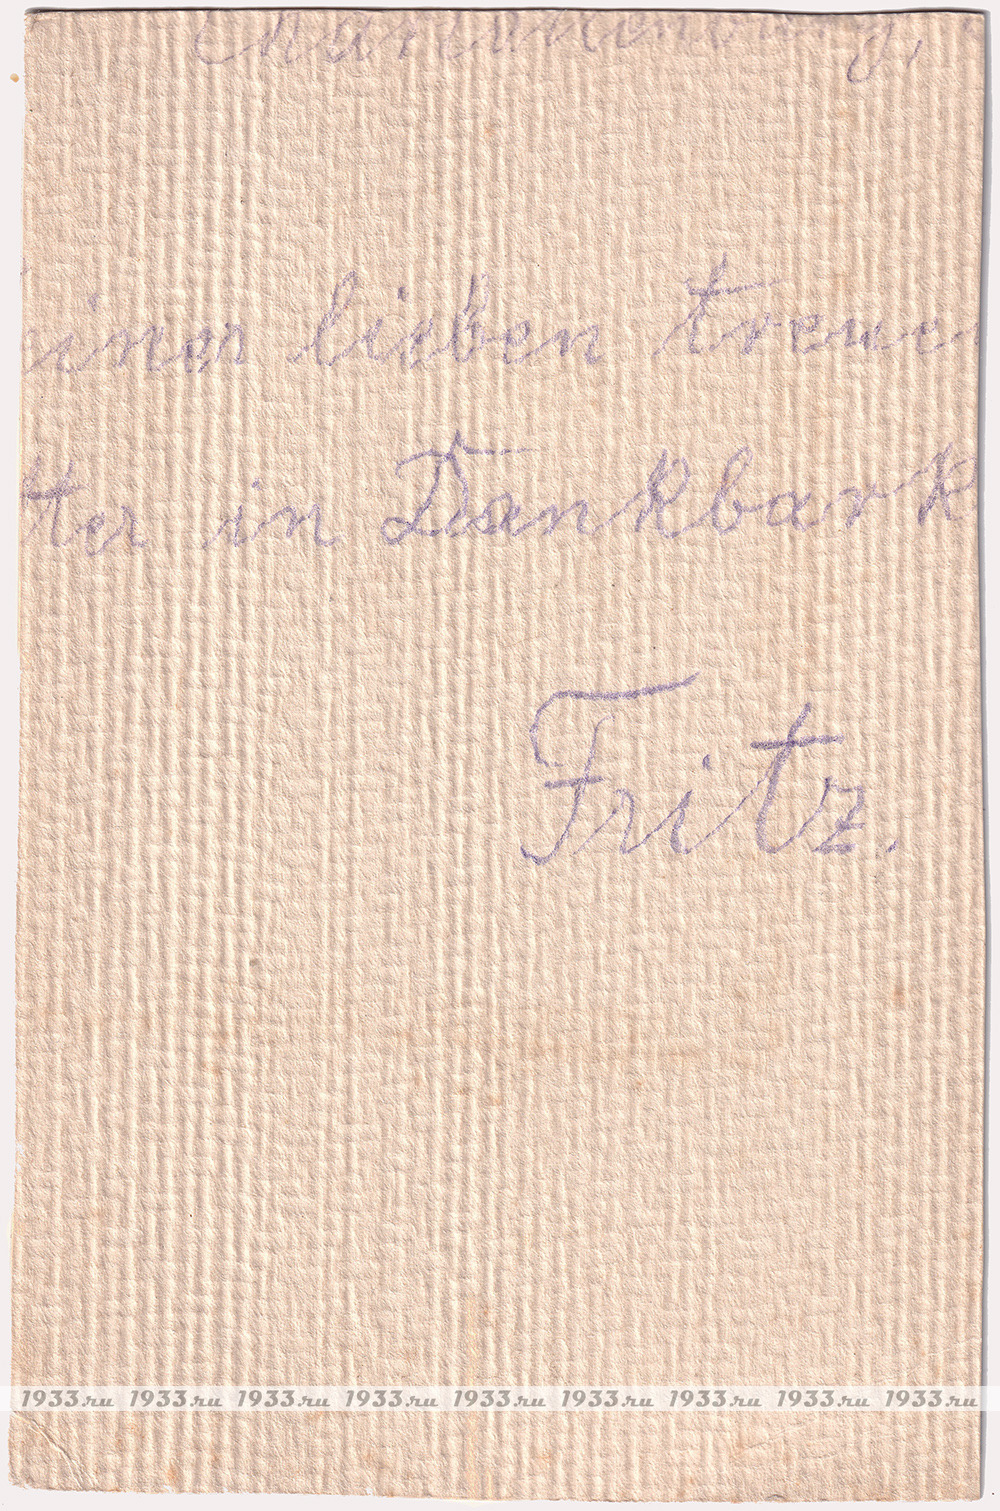 Charlottenburg,
einer lieben treuen
tter in Dankbark
Fritz.
1933.ru 1933.ru 1933.ru 1933.ru 1933.ru 1933.ru 1933.ru 1933.ru 1933.ru